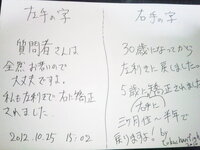 左手の字
質問者さんは
全然お若いので
大丈夫ですよ。
私も左利きで右に矯正
されました。
2012.10.25 15:02
右手の字
30歳になってから
左利きに戻しました。
5歳で矯正されました
(右手に)
三ヶ月位〜半年で
戻りますよ。by